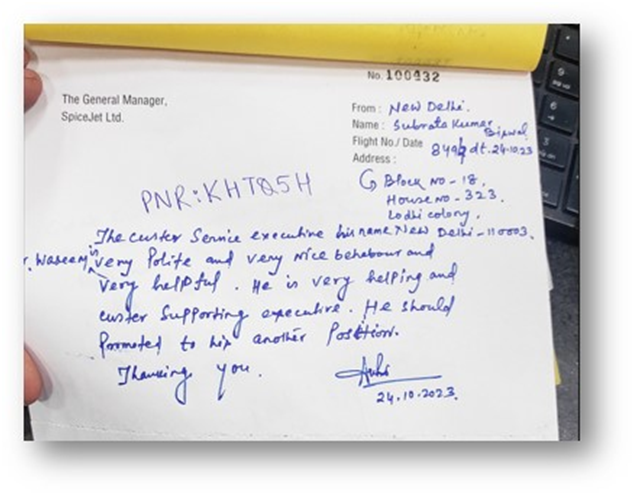 No. 100432
The General Manager,
SpiceJet Ltd.
From : New Delhi.
Name : Subrata Kumar
Biswal
Flight No./ Date dt. 24.10.23
Address :
Block No - 18,
House No - 323.
Lodhi colony,
New Delhi - 110003.
PNR: KHTQ5H
The custer Service executive his name
r. Waseem is very Polite and very nice behabour and
very helpful. He is very helping and
custer Supporting executive. He should
Promoted to his another Position.
Thanking you.
24.10.2023.